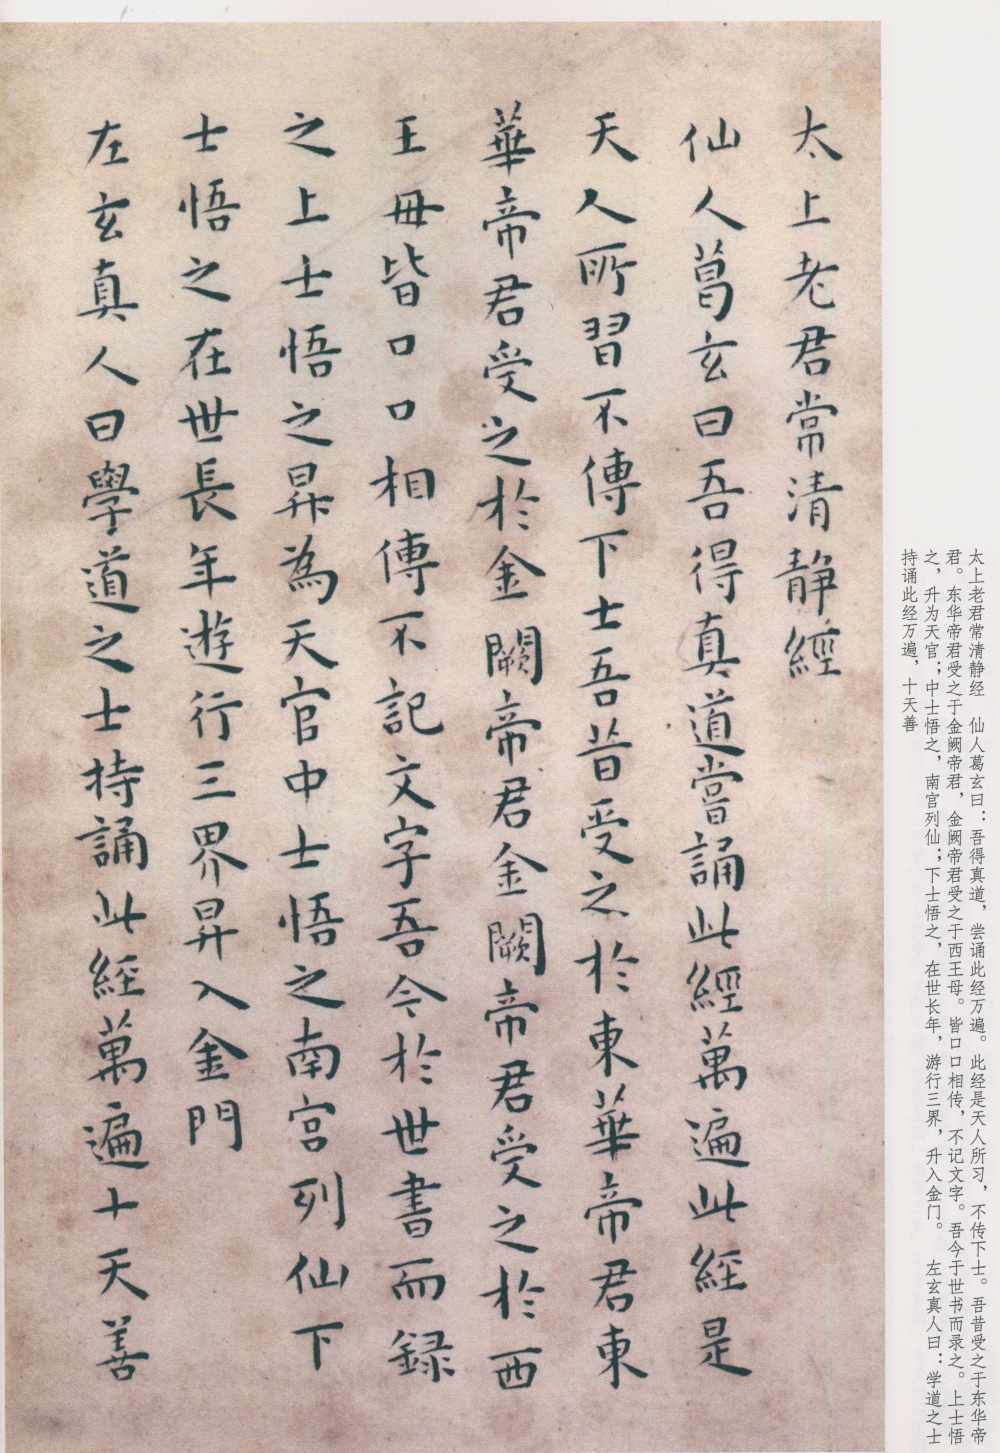 太上老君常清静經
仙人葛玄曰吾得真道嘗誦此經萬遍此經是
天人所習不傳下士吾昔受之於東華帝君東
華帝君受之於金闕帝君金闕帝君受之於西
王母皆口口相傳不記文字吾今於世書而録
之上士悟之昇為天官中士悟之南宫列仙下
士悟之在世長年遊行三界昇入金門
左玄真人曰學道之士持誦此經萬遍十天善
太上老君常清静经　仙人葛玄曰：吾得真道，尝诵此经万遍。此经是天人所习，不传下士。吾昔受之于东华帝
君。东华帝君受之于金阙帝君，金阙帝君受之于西王母。皆口口相传，不记文字。吾今于世书而录之。上士悟
之，升为天官；中士悟之，南宫列仙；下士悟之，在世长年，游行三界，升入金门。　左玄真人曰：学道之士
持诵此经万遍，十天善